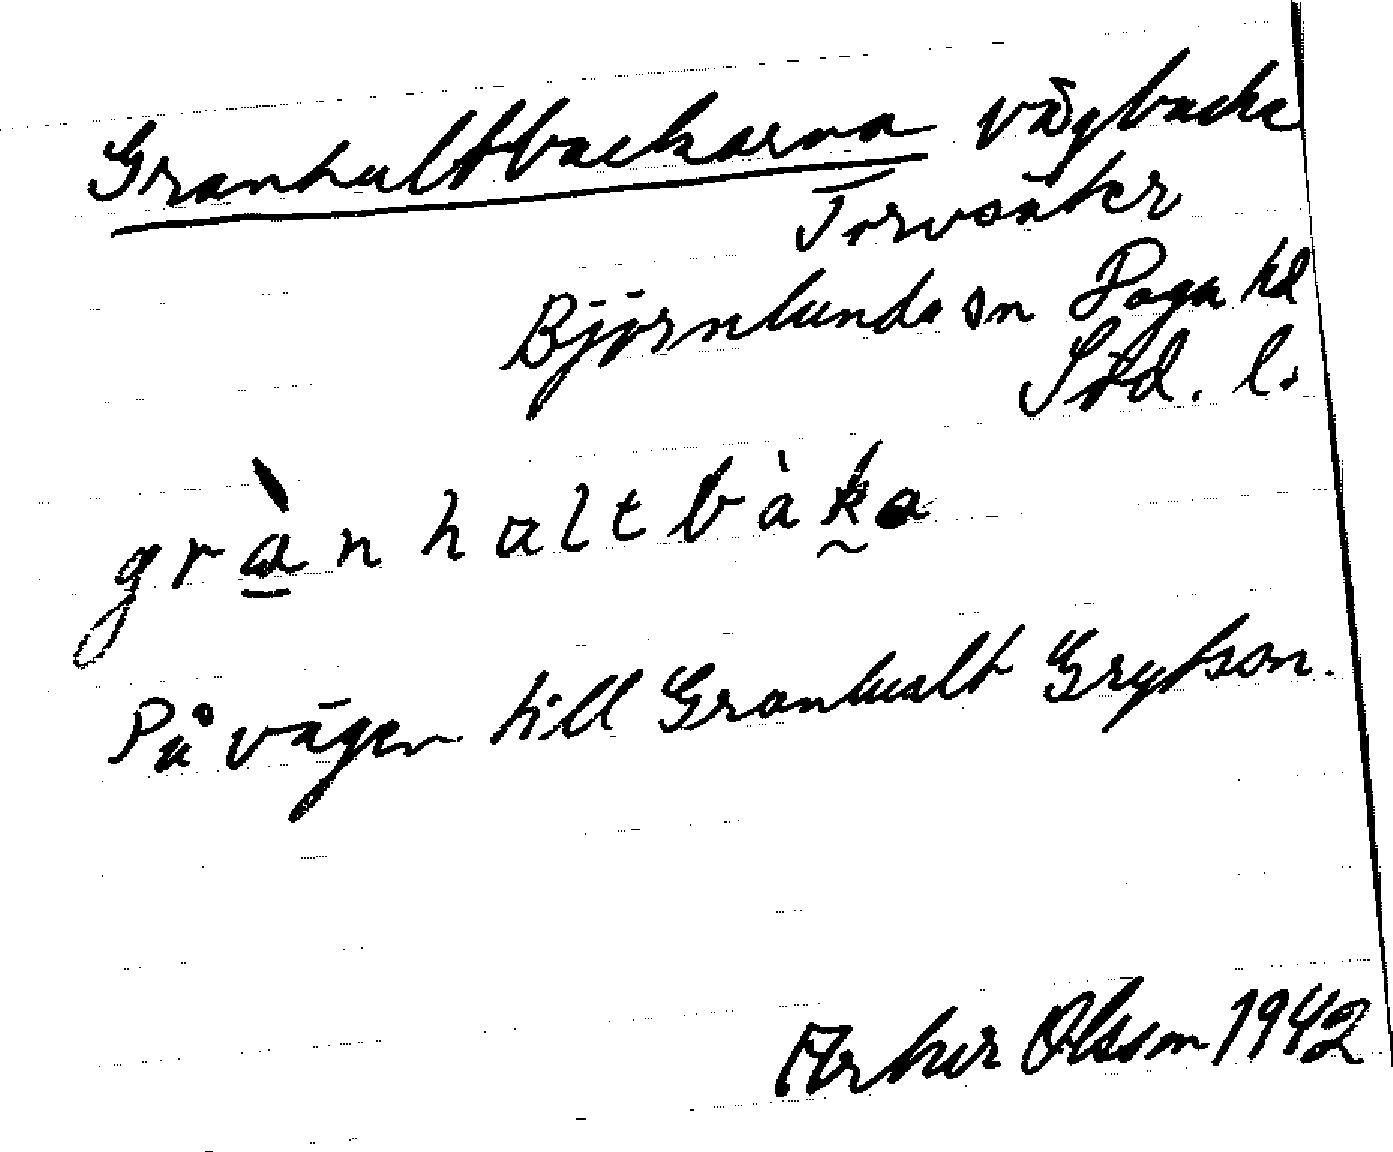 Granhultbackarna vägbacke
Torvsäter
Björnlunda sn Daga hd
Söd. l.
grànhaltbàka
På vägen till Granhult Grytson.
Olsson 1942